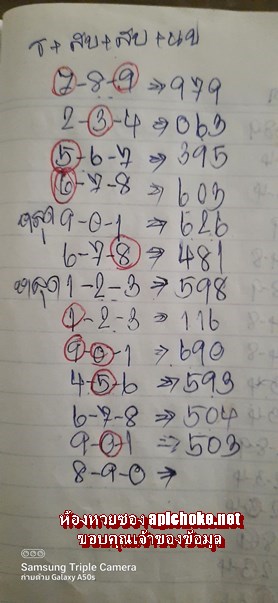 ร+สบ+สบ+นป
7-8-9 ⇒ 979
2-3-4 ⇒ 063
5-6-7 ⇒ 395
6-7-8 ⇒ 603
หลุด 9-0-1 ⇒ 626
6-7-8 ⇒ 481
หลุด 1-2-3 ⇒ 598
1-2-3 ⇒ 116
9-0-1 ⇒ 690
4-5-6 ⇒ 593
6-7-8 ⇒ 504
9-0-1 ⇒ 503
8-9-0 →
ห้องหวยซอง apichoke.net
ขอบคุณเจ้าของข้อมูล
Samsung Triple Camera
ถ่ายด้วย Galaxy A50s